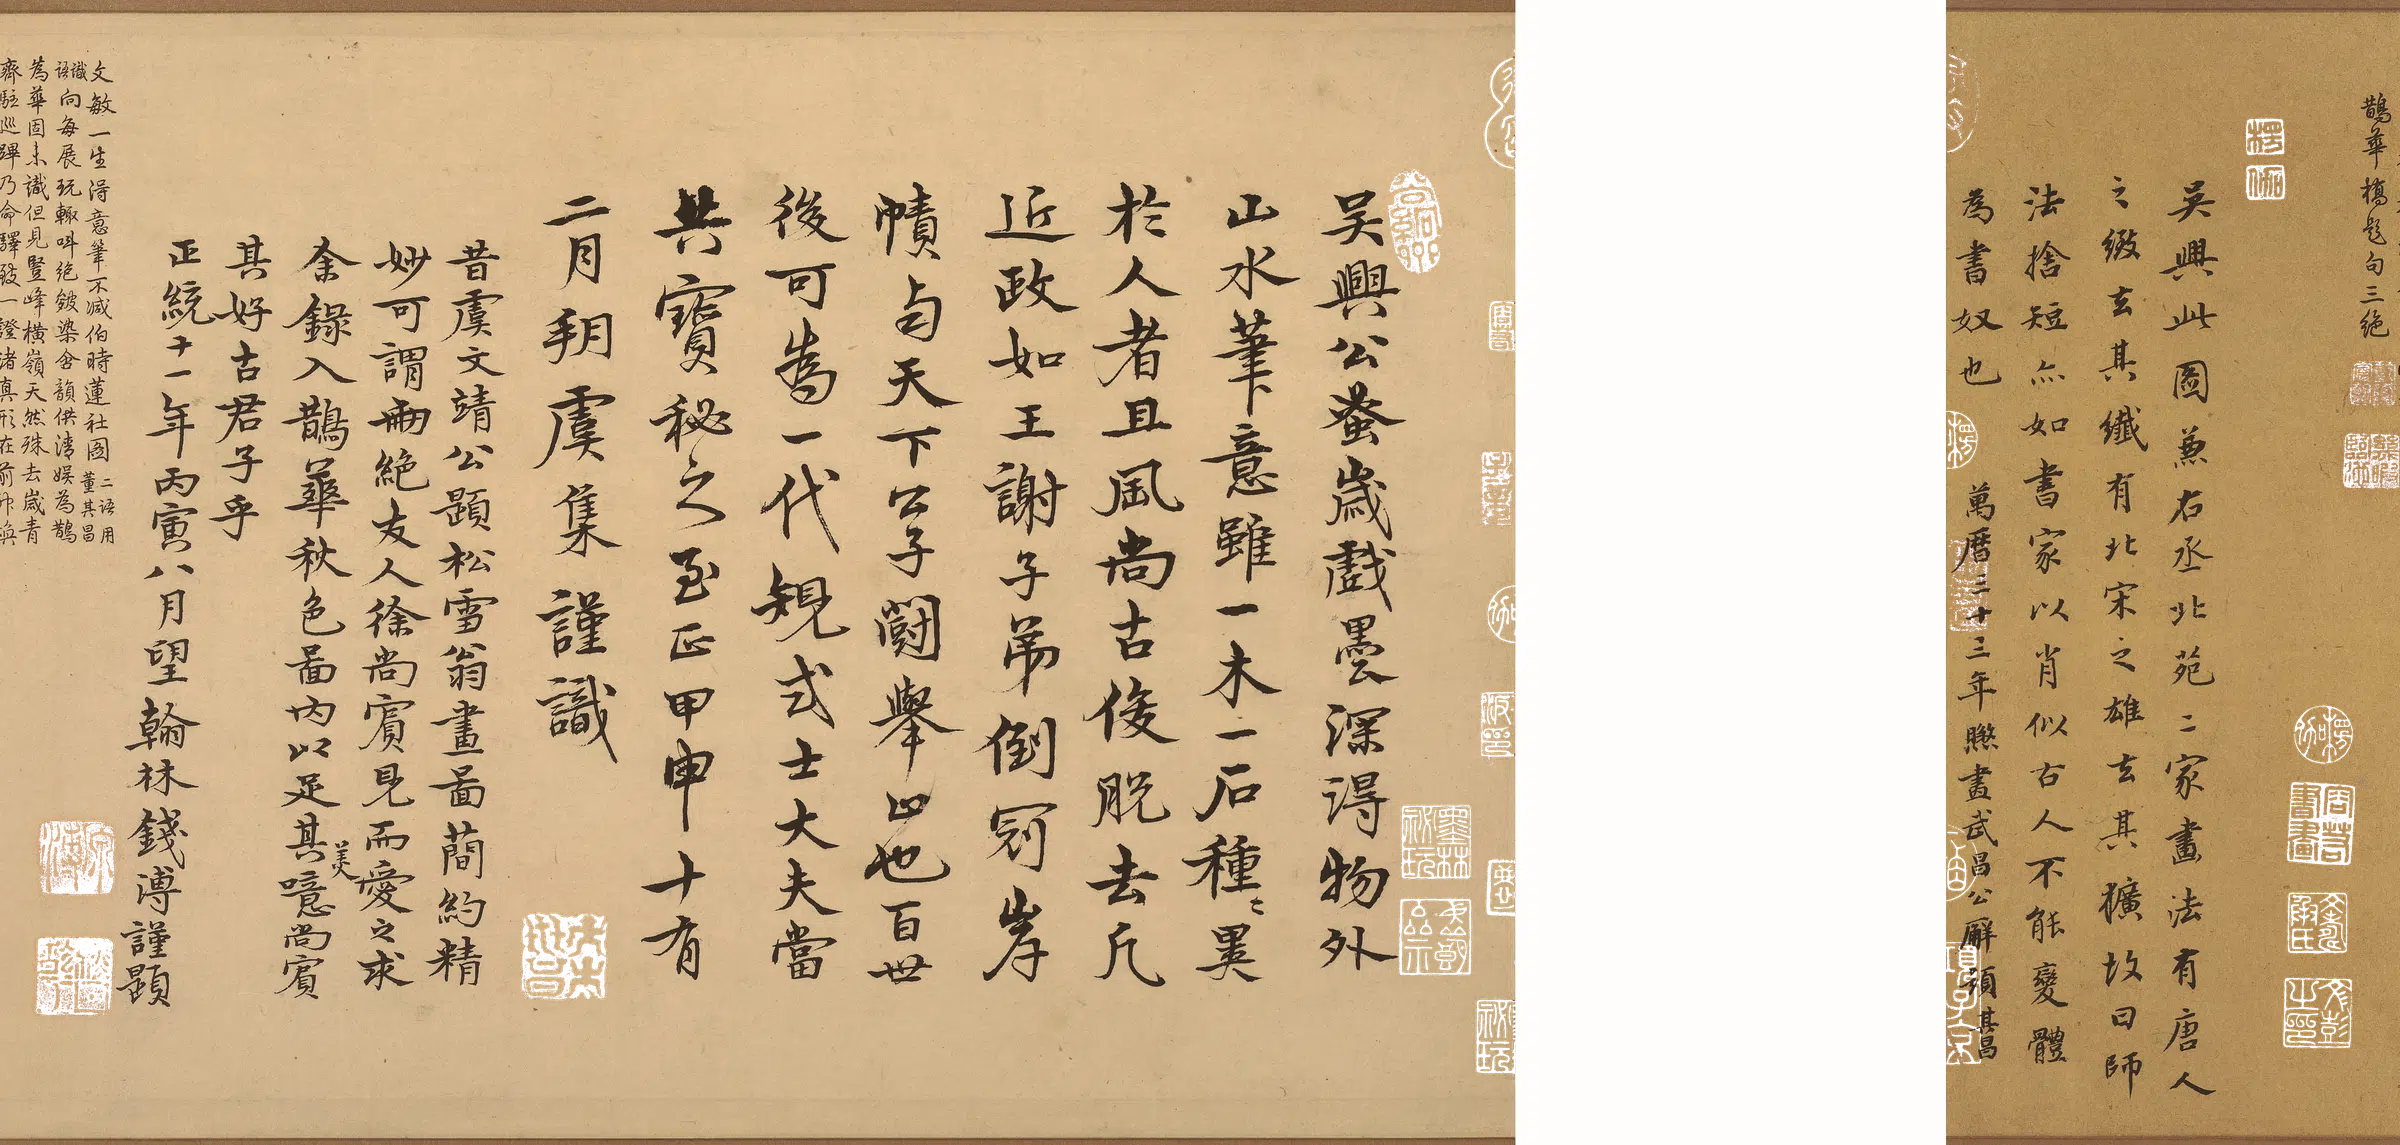 鵲華橋題句三絶
吳興此圖兼右丞北苑二家畫法有唐人
之緻去其纖有北宋之雄去其獷故曰師
法捨短亦如書家以肖似古人不能變體
為書奴也
萬曆三十三年𥌒畫武昌公廨題其昌
吴興公蚤歲戲墨深得物外
山水筆意雖一木一石種〻異
於人者且風尚古俊脫去凡
近政如王謝子弟倒冠岸
幘與天下公子鬪舉止也百世
後可為一代規式士大夫當
共寶秘之至正甲申十有
二月朔虞集謹識
昔虞文靖公題松雪翁畫啚蕑約精
妙可謂兩絶友人徐尚賓見而愛之求
余錄入鵲華秋色啚内以足其美噫尚賓
其好古君子乎
正統十一年丙寅八月望翰林錢溥謹題
文敏一生得意筆不減伯時蓮社圖二語用董其昌
識語向每展玩輙叫絶皴染含韻供清娱為鵲
為華固未識但見豎峰横嶺天然殊去歲青
齊駐巡蹕乃命驛致一證諸真形在前神與